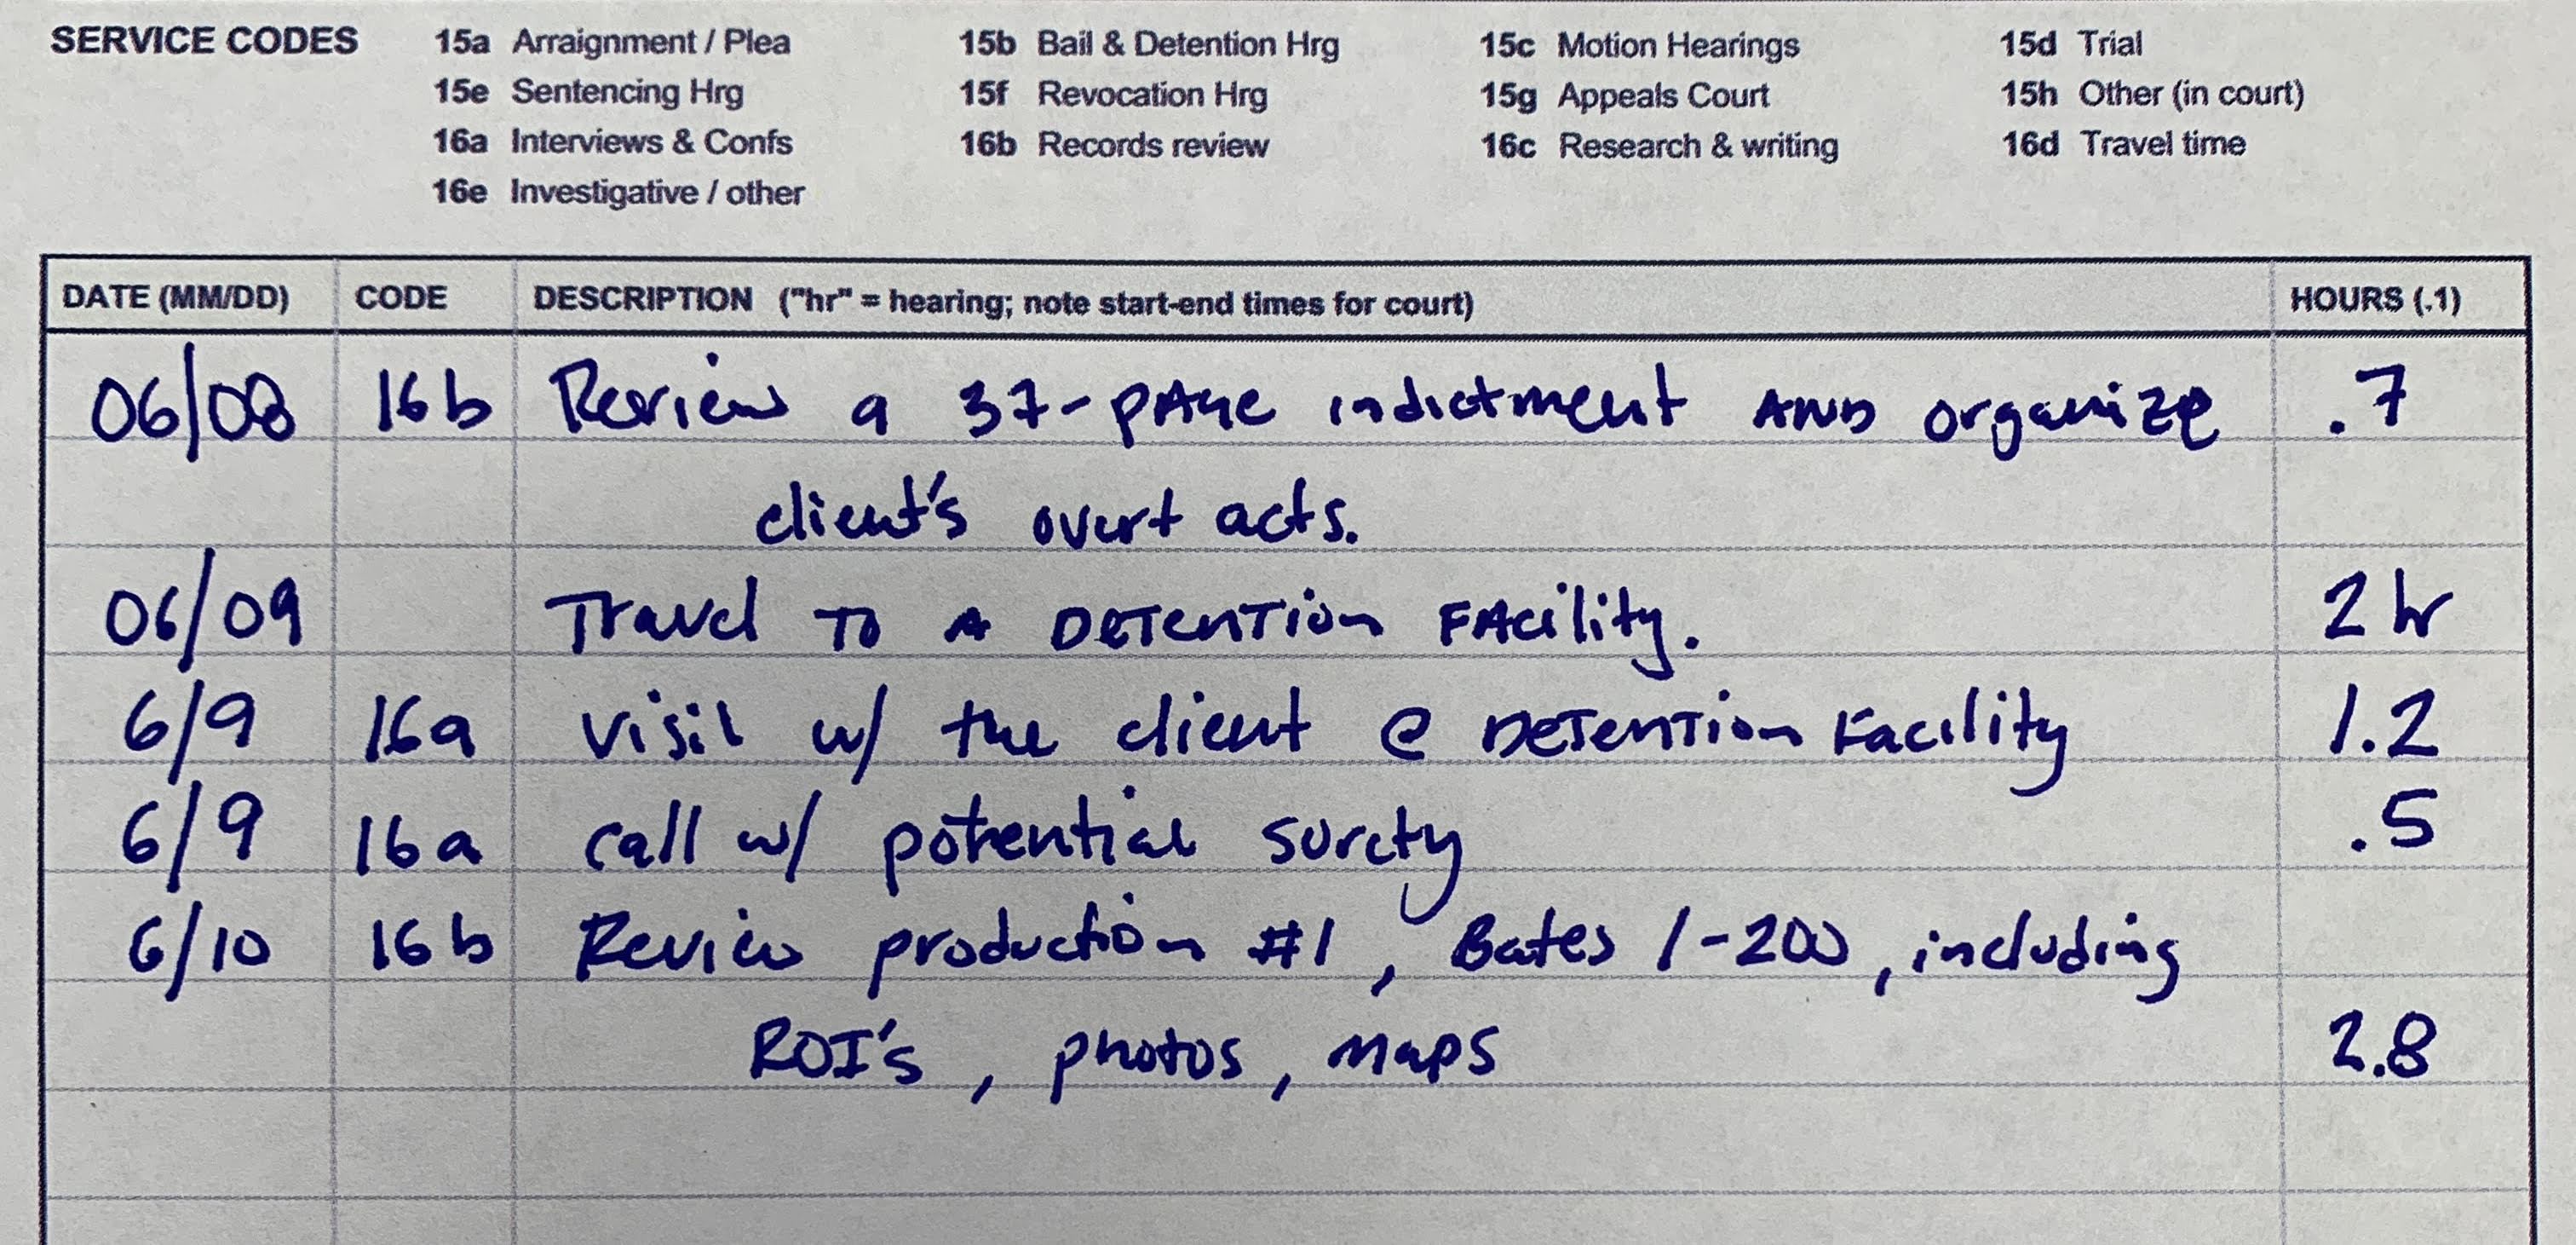 SERVICE CODES 15a Arraignment / Plea 15b Bail & Detention Hrg 15c Motion Hearings 15d Trial
15e Sentencing Hrg 15f Revocation Hrg 15g Appeals Court 15h Other (in court)
16a Interviews & Confs 16b Records review 16c Research & writing 16d Travel time
16e Investigative / other
DATE (MM/DD) CODE DESCRIPTION ("hr" = hearing; note start-end times for court) HOURS (.1)
06/08 16b Review a 37-page indictment AND organize .7
client's overt acts.
06/09 Travel TO A DETENTION FACility. 2 hr
6/9 16a Visit w/ the client @ DETENTION Facility 1.2
6/9 16a call w/ potential surety .5
6/10 16b Review production #1, Bates 1-200, including
ROI's, photos, maps 2.8